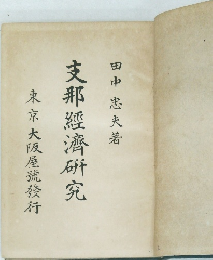 田中忠夫著
支那經濟研究
東京大阪屋號發行